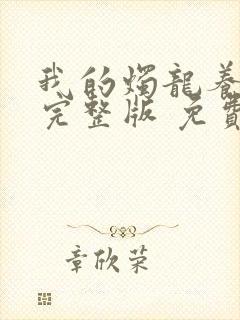 我的燭龍養
完整版 免費
章欣荣